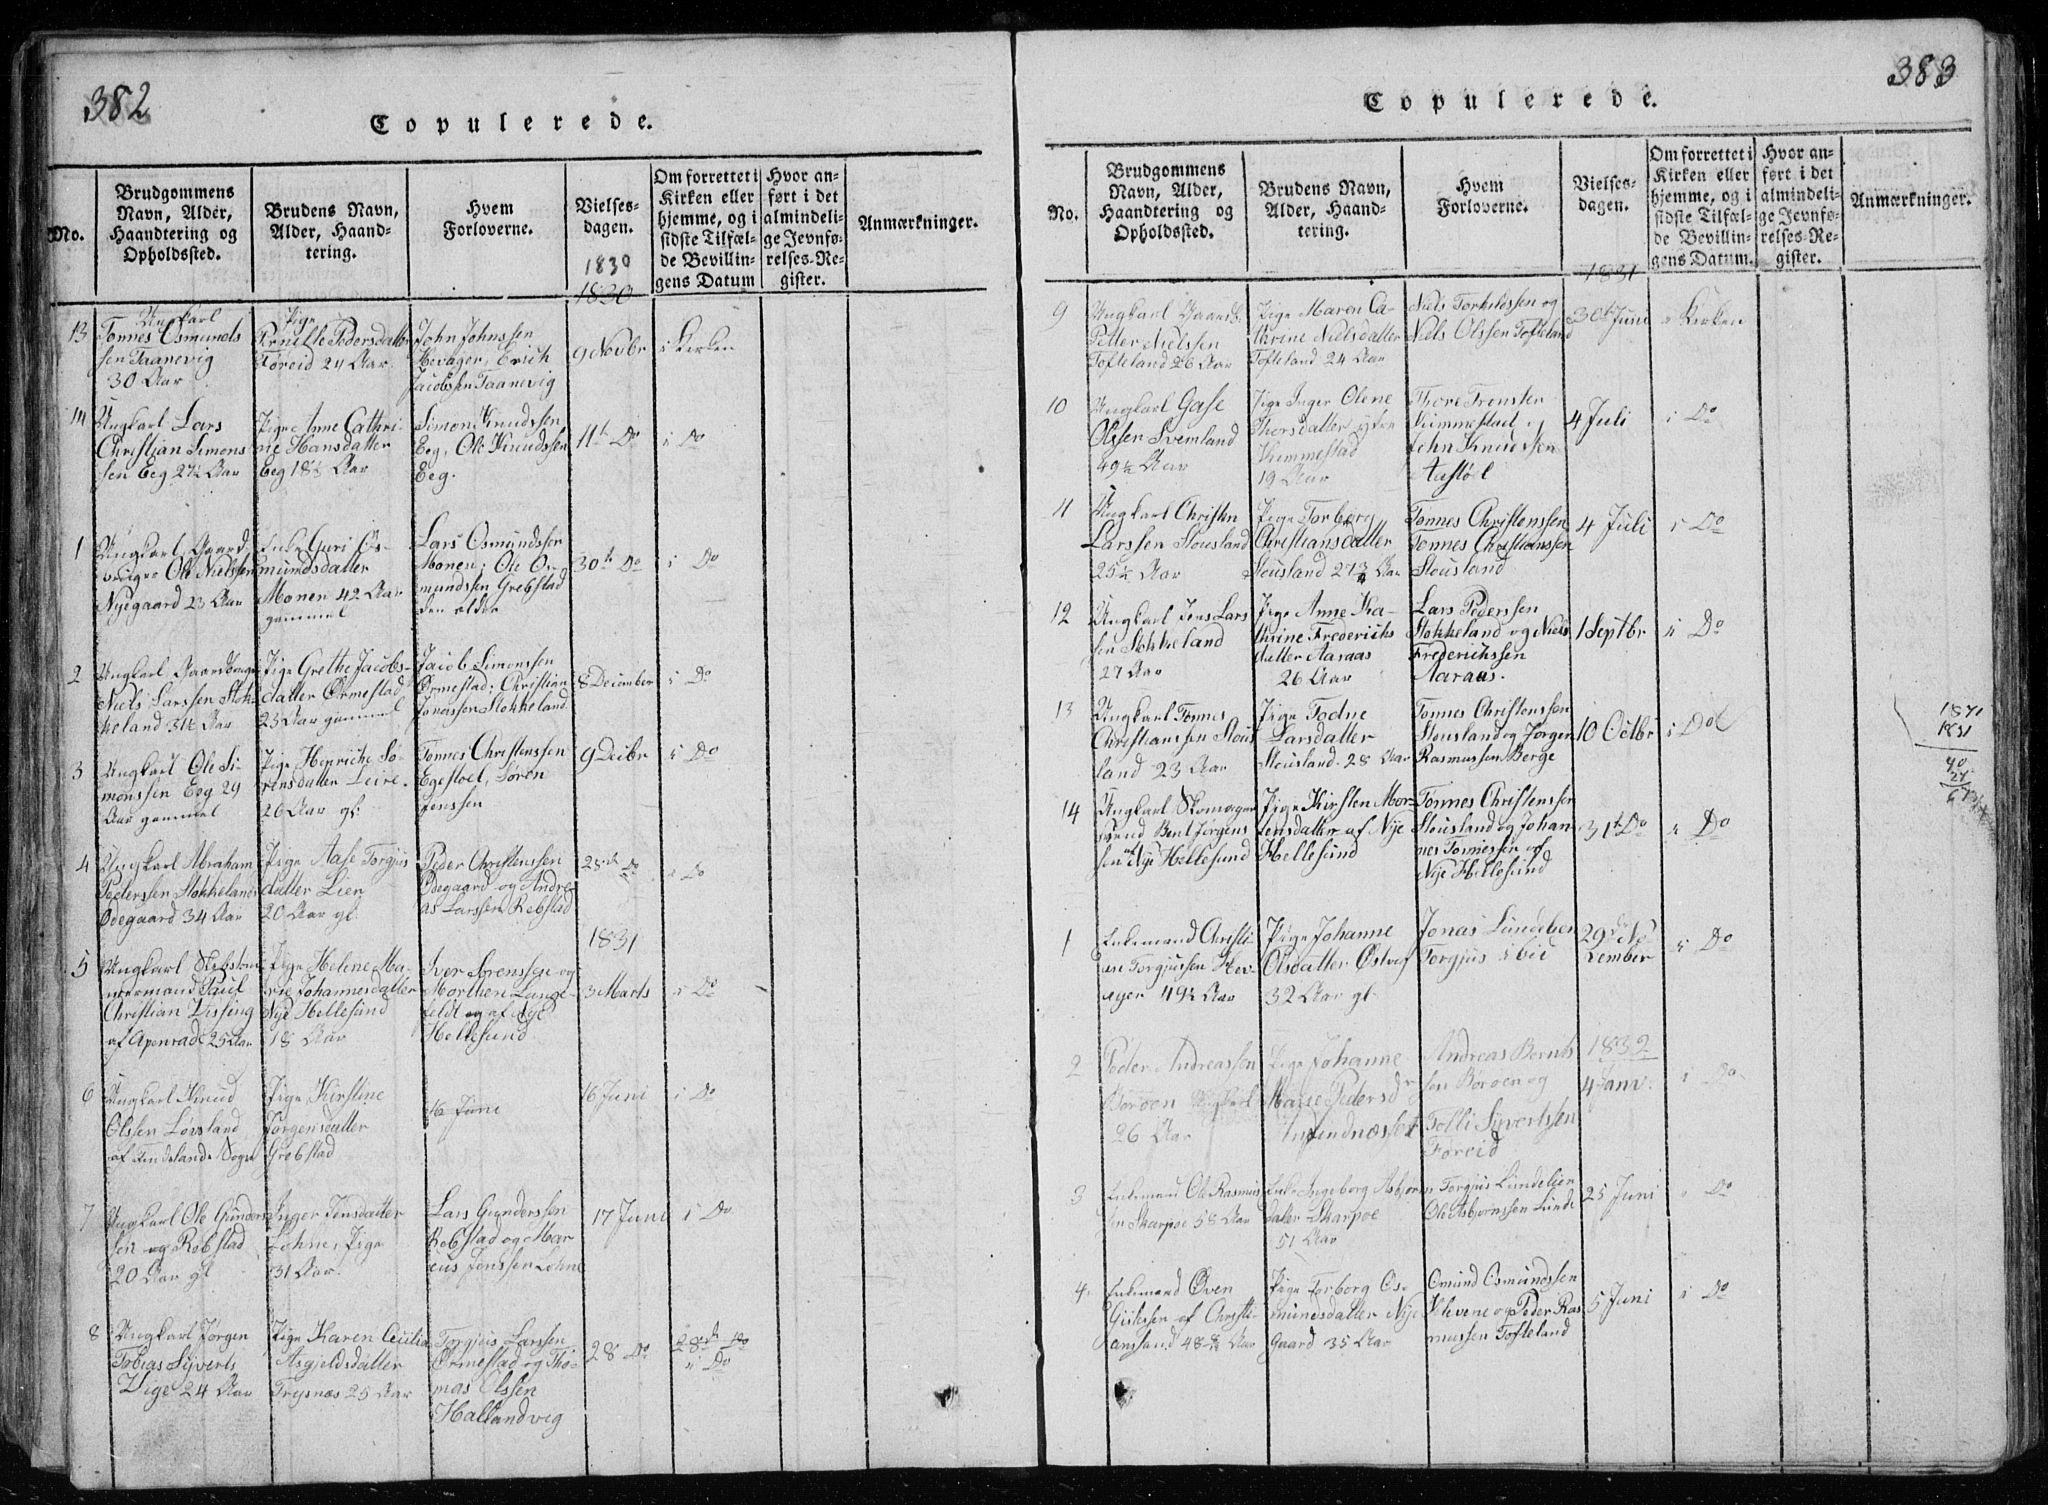 382
Copulerede.
No.
Brudgommens Navn, Alder, Haandtering og Opholdssted.
Brudens Navn, Alder, Haandtering.
Hvem Forloverne.
Vielsesdagen.
Om forrettet i Kirken eller hjemme, og i sidste Tilfælde Bevillingens Datum
Hvor anført i det almindelige Jevnførelses-Register.
Anmærkninger.
1830
1830
13
Ungkarl
Tønnes Osmunds
sen Taanevig
30 Aar
Pige
Pernille Pedersdatter
Føreid 24 Aar
John Johnssen
Kevager, Erich
Jacobssen Taanevig
9 Novbr
i Kirken
14
Ungkarl Lars
Christian Simons
sen Eeg 27½ Aar
Pige Anne Cathri-
ne Hansdatter
Eeg 18½ Aar
Simon Knudssen
Eeg, Ole Knudssen
Eeg.
11te Do
i Do
1
Ungkarl Gaard
bruger Ole Nielssen
Nyegaard 23 Aar
Enke Guri Os-
mundsdatter
Monen 42 Aar
gammel
Lars Osmundssen
Monen; Ole Os-
mundssen Grebstad
den eldre
30te Do
i Do
2
Ungkarl Gaardbruger
Niels Larssen Stok-
keland 31½ Aar
Pige Grethe Jacobs-
datter Ørmestad
23 Aar gammel
Jacob Simonssen
Ørmestad; Christian
Jonassen Stokkeland
8 December
i Do
3
Ungkarl Ole Si-
monssen Eeg 29
Aar gammel
Pige Henriche Sø-
rensdatter Leire
26 Aar gl.
Tønnes Christenssen
Egestøel, Søren
Jenssen
9 Decbr
i Do
4
Ungkarl Abraham
Pederssen Stokkelands
Ødegaard 34 Aar
Pige Aase Torgius
datter Lien
20 Aar gl.
Peder Christenssen
Ødegaard og Andre-
as Larssen Rebstad
28de Do
i Do
1831
5
Ungkarl Skibstøm
mermand Paul
Christian Dissing
af Apenrad 25 Aar
Pige Helene Ma-
rie Johannesdatter
Nÿe Hellesund
18 Aar
Iver Sørenssen og
Morthen Lange-
feldt og af Nÿe
Hellesund
3 Marts
i Do
6
Ungkarl Knud
Olssen Løvsland
af Findslands Sogn
Pige Kirstine
Jørgensdatter
Grebstad
16 Juni
16 Juni
i Do
7
Ungkarl Ole Gunders
sen og Rebstad
20 Aar gl
Inger Jensdatter
Lohne, Pige
31 Aar.
Lars Gunderssen
Rebstad og Mar-
cus Jenssen Lohne
17 Juni
i Do
8
Ungkarl Jørgen
Tobias Sÿverts
Vige 24 Aar
Pige Karen Cecilia
Asgjeldsdatter
Trysnæs 25 Aar
Torgius Larssen
Ørmestad og Tho-
mas Olssen
Hallandvig
28 Do
28de Do
i Do
383
Copulerede.
No.
Brudgommens Navn, Alder, Haandtering og Opholdssted.
Brudens Navn, Alder, Haandtering.
Hvem Forloverne.
Vielsesdagen.
Om forrettet i Kirken eller hjemme, og i sidste Tilfælde Bevillingens Datum.
Hvor anført i det almindelige Jevnførelses-Register.
Anmærkninger.
1831
9
Ungkarl Gaardb.
Petter Nielssen
Tofteland 26 Aar
Pige Maren Ca-
thrine Nielsdatter
Tofteland 24 Aar
Niels Torkildssen og
Niels Olssen Tofteland
30te Juni
i Kirken
10
Ungkarl Gase
Olssen Svemland
49½ Aar
Pige Inger Olene
Thorsdatter
Kimmestad
19 Aar
Thore
Kimmestad,
John Knudssen
Aastøl
4 Juli
i Do
11
Ungkarl Christen
Larssen Stousland
25½ Aar
Pige Torborg
Christiansdatter
Stousland 27¾ Aar
Tønnes Christenssen
Tønnes Christianssen
Stousland
4 Juli
i Do
12
Ungkarl Jens Lars
sen Stokkeland
27 Aar
Pige Anne Ka-
thrine Frederichs
datter Aaraas
26 Aar
Lars Pederssen
Stokkeland og Niels
Frederichssen
Aaraas.
1 Septbr
i Do
13
Ungkarl Tønnes
Christianssen Stous
land 23 Aar
Pige Todne
Larsdatter
Stousland 28 Aar
Tønnes Christenssen
Stousland og Jørgen
Rasmussen Berge
10 Octbr
i Do
1871
1831
40
14
Ungkarl Skomager
svend Bent Jørgens
sen af Nye Hellesund
Pige Kirsten Mor-
tensdatter af Nÿe
Hellesund
Tønnes Christenssen
Stousland og Johan-
nes Tønnessen af
Nÿe Hellesund
31te Do
i Do
1
Enkemand Christi
an Torgiussen Kev-
ager 49½ Aar
Pige Johanne
Olsdatter Østvef
32 Aar gl.
Jonas Lundelien
Torgjus ibid
29de No
vember
i Do
2
Peder Andreassen
Borøen Ungkarl
26 Aar
Pige Johanne
Marie Pedersdr
Andreas Bernts
sen Borøen og
Tolli Sÿvertssen
Foreid
1832
4 Janv.
i Do
3
Enkemand Ole Rasmus
sen Skarpøe 58 Aar
Enke Ingeborg Asbjørns
datter Skarpøe
51 Aar
Torgjus Lundelien
Ole Asbjørnssen Lunde
25 Juni
i Do
4.
Enkemand Øven
af Christi-
ansand 48 Aar
Pige Torborg Os-
mundsdatter Nÿe
gaard 35 Aar
Omund Osmundssen
Klevene og Peder Ras
mussen Tofteland
5 Juni
i Do